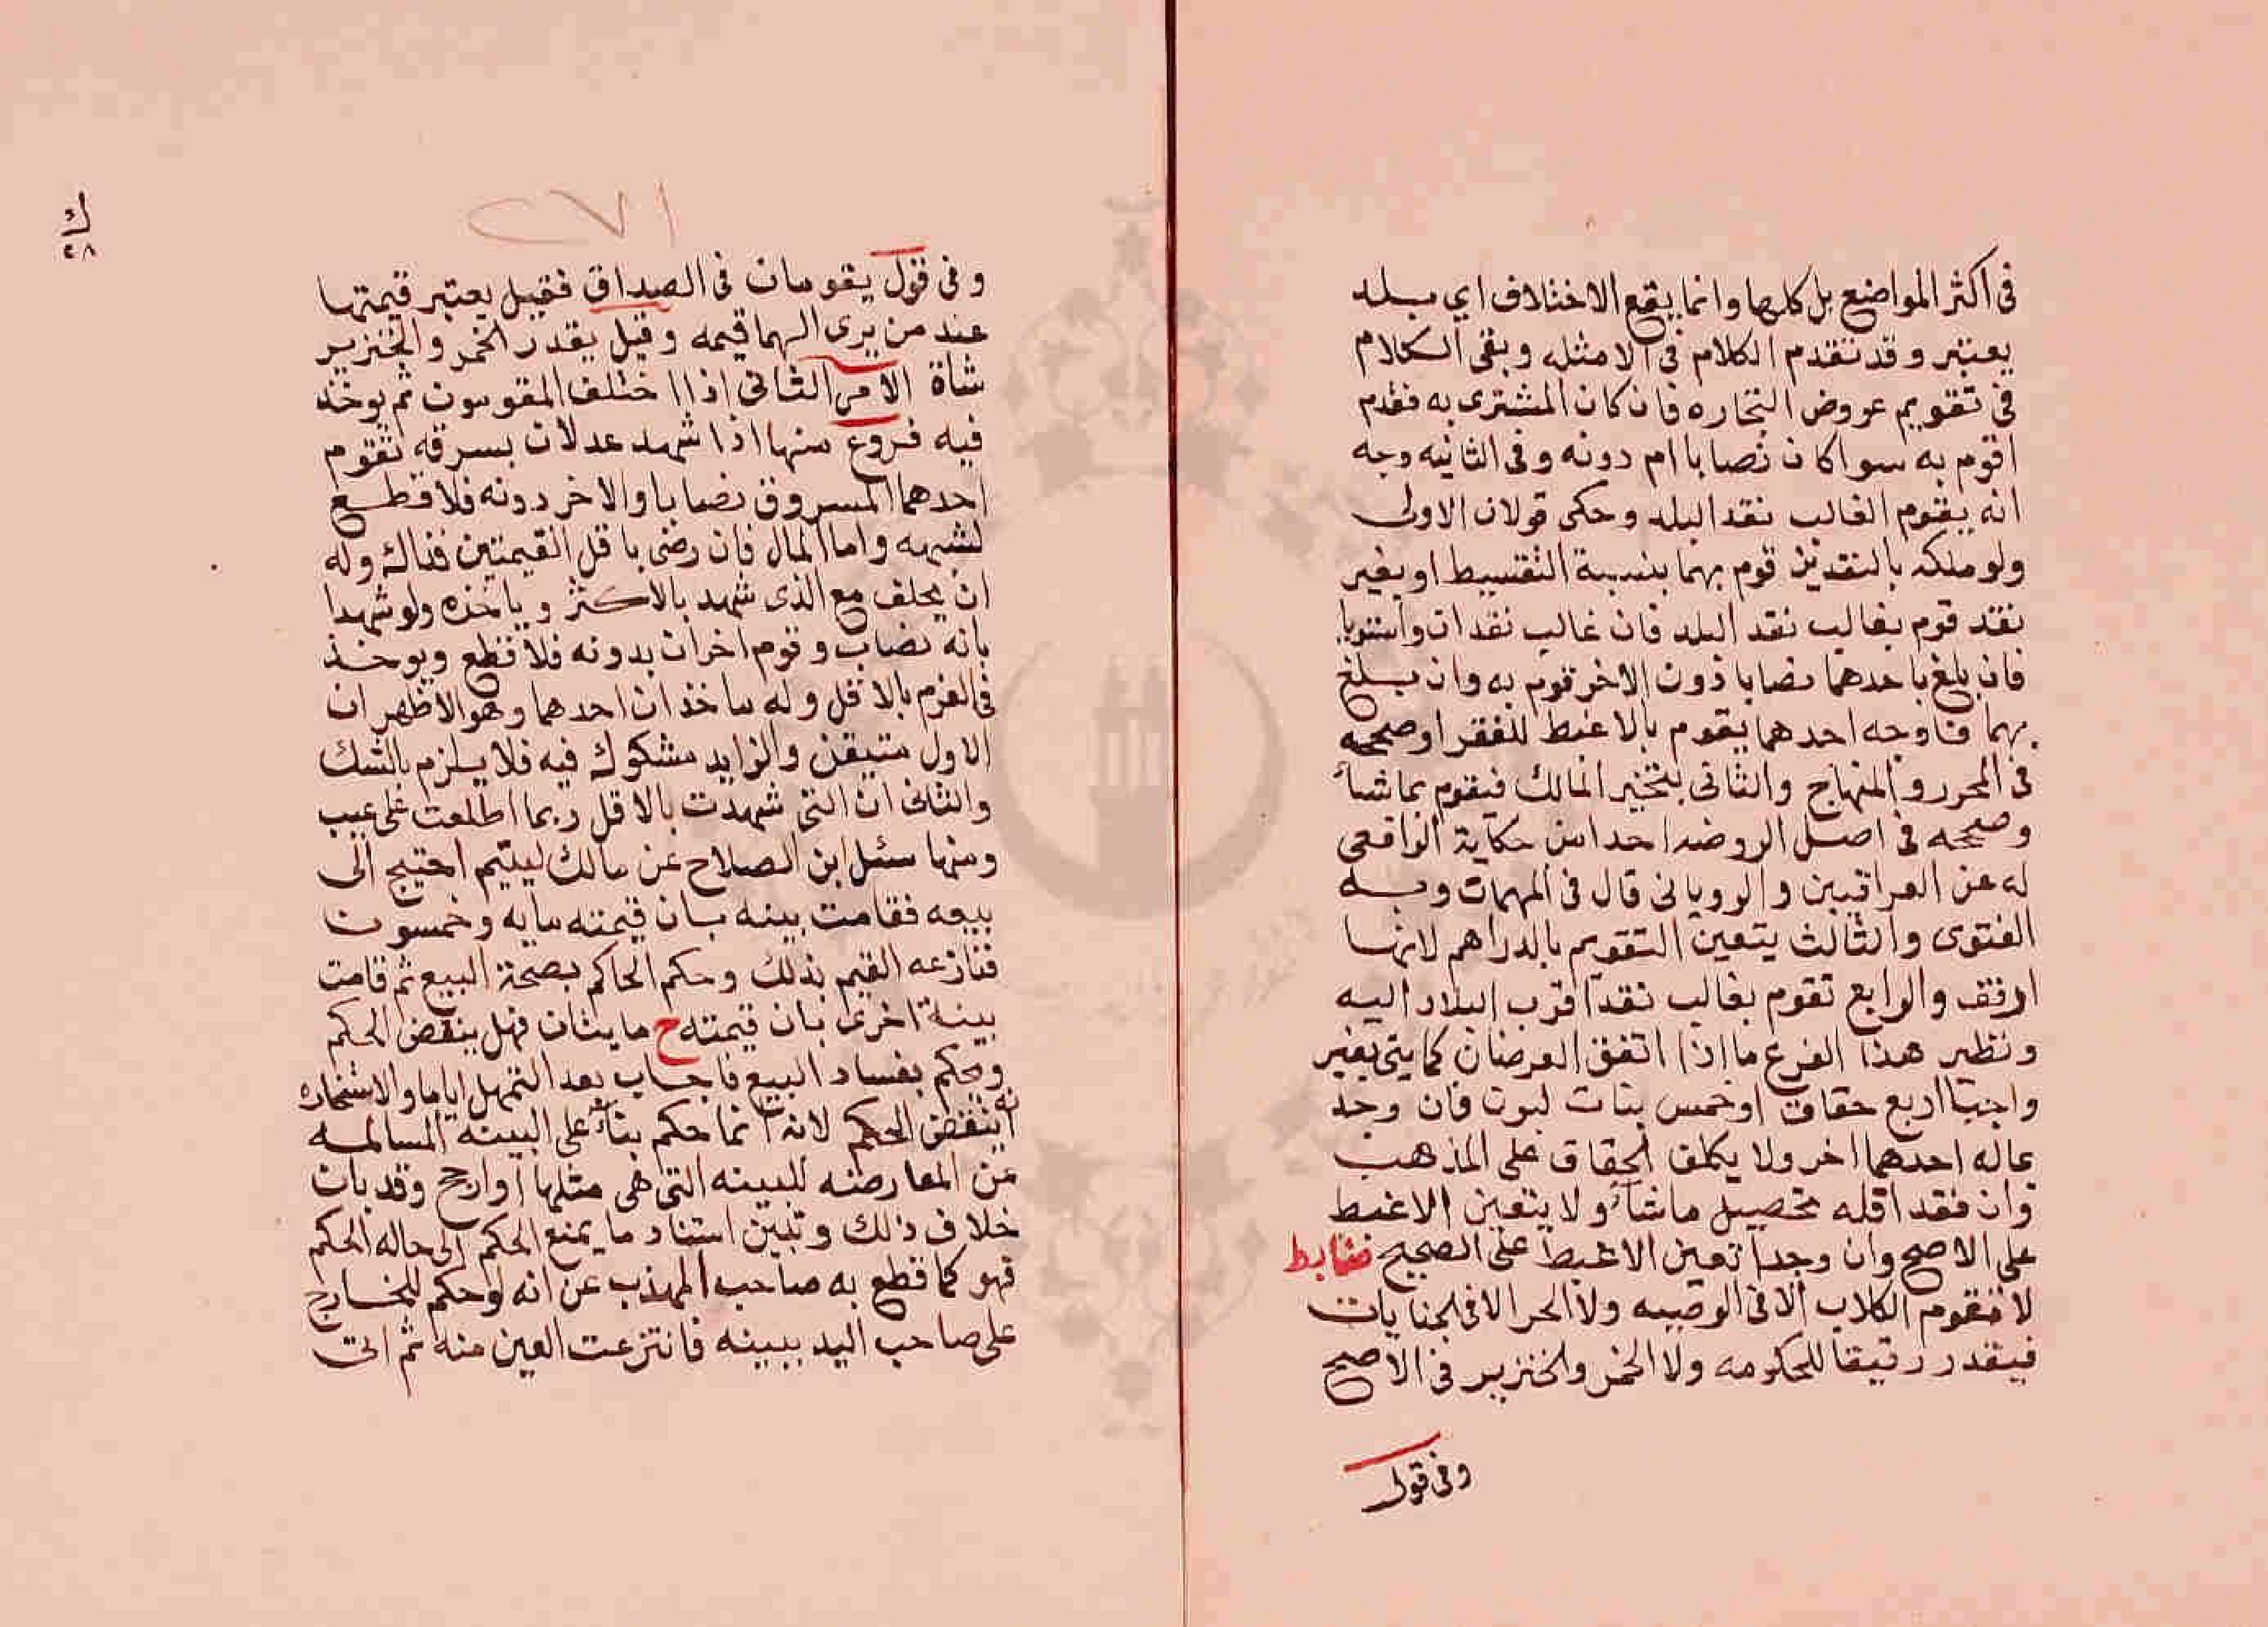 في اكثر المواضع بل كلها وانما يقع الاختلاف اي بلد
يعتبر وقد تقدم الكلام في الامثله وبقي الكلام
في تقويم عروض التجاره فان كان المشترى به فقدم
اقوم به سوا كان نصابا ام دونه وفي الثانيه وجه
انه يقوم الغالب نقد البلد وحكى قولان الاولى
ولو ملكه بالنقدين قوم بهما بنسبة التقسيط او بغير
نقد قوم بغالب نقد البلد فان غالب نقدان واستويا
فان بلغ باحدهما نصابا دون الاخر قوم به وان بلغ
بهما فاوجه احدهما يقوم بالاغبط للفقرا وصححه
في المحرر والمنهاج والثاني يتخير المالك فيقوم بما شاء
وصححه في اصل الروضه احدا من حكاية الرافعى
له عن العراقيين والروياني قال في المهمات وبه
الفتوى والثالث يتعين التقويم بالدراهم لانها
ارفق والرابع تقوم بغالب نقد اقرب البلاد اليه
ونظير هذا الفرع ما اذا اتفق الفرضان كمايتي بعير
واجبها اربع حقاق او خمس بنات لبون فان وجد
بماله احدهما اخر ولا يكلف الحقاق على المذهب
وان فقد اقله تحصيل ما شاء ولا يتعين الاغبط
على الاصح وان وجدا تعين الاغبط على الصحيح ضابط
لا تتقوم الكلاب الا في الوصيه ولا الحر الا في الجنايات
فيتقدر رقيقا للحكومه ولا الخمر والخنزير في الاصح
وفي قول
ك
٢٨
٢٧١
وفي قول يقومان في الصداق فقيل يعتبر قيمتها
عند من يرى الهما قيمه وقيل يقدر الخمر والخنزير
شاة الامر الثاني اذا اختلف المقومون ثم يوخذ
فيه فروع منها اذا شهد عدلان بسرقه تقوم
احدهما المسروق نصابا والاخر دونه فلا قطع
لشبهه واما المال فان رضي باقل القيمتين فذاك وله
ان يحلف مع الذى شهد بالاكثر وياخذه ولو شهدا
بانه نصاب وقوم اخران بدونه فلا قطع ويوخذ
في الغرم بالاقل وله ماخذان احدهما وهو الاظهر ان
الاول متيقن والزايد مشكوك فيه فلا يلزم بالشك
والثاني ان التي شهدت بالاقل ربما اطلعت على عيب
ومنها سئل ابن الصلاح عن مالك ليتيم احتيج الى
بيعه فقامت بينه بان قيمته مايه وخمسون
فنازعه القيم بذلك وحكم الحاكم بصحة البيع ثم قامت
بينة اخرى بان قيمته ح مايتان فهل ينقض الحكم
ويحكم بفساد البيع فاجاب بعد التمهل اياما والاستخاره
انه ينقض الحكم لانه انما حكم بناء على البينه السالمه
عن المعارضه للبينه التي هى مثلها او ارجح وقد بان
خلاف ذلك وتبين استناد ما يمنع الحكم الى حاله الحكم
فهو كما قطع به صاحب المهذب عن انه لو حكم للخارج
على صاحب اليد ببينه فانتزعت العين منه ثم اتى